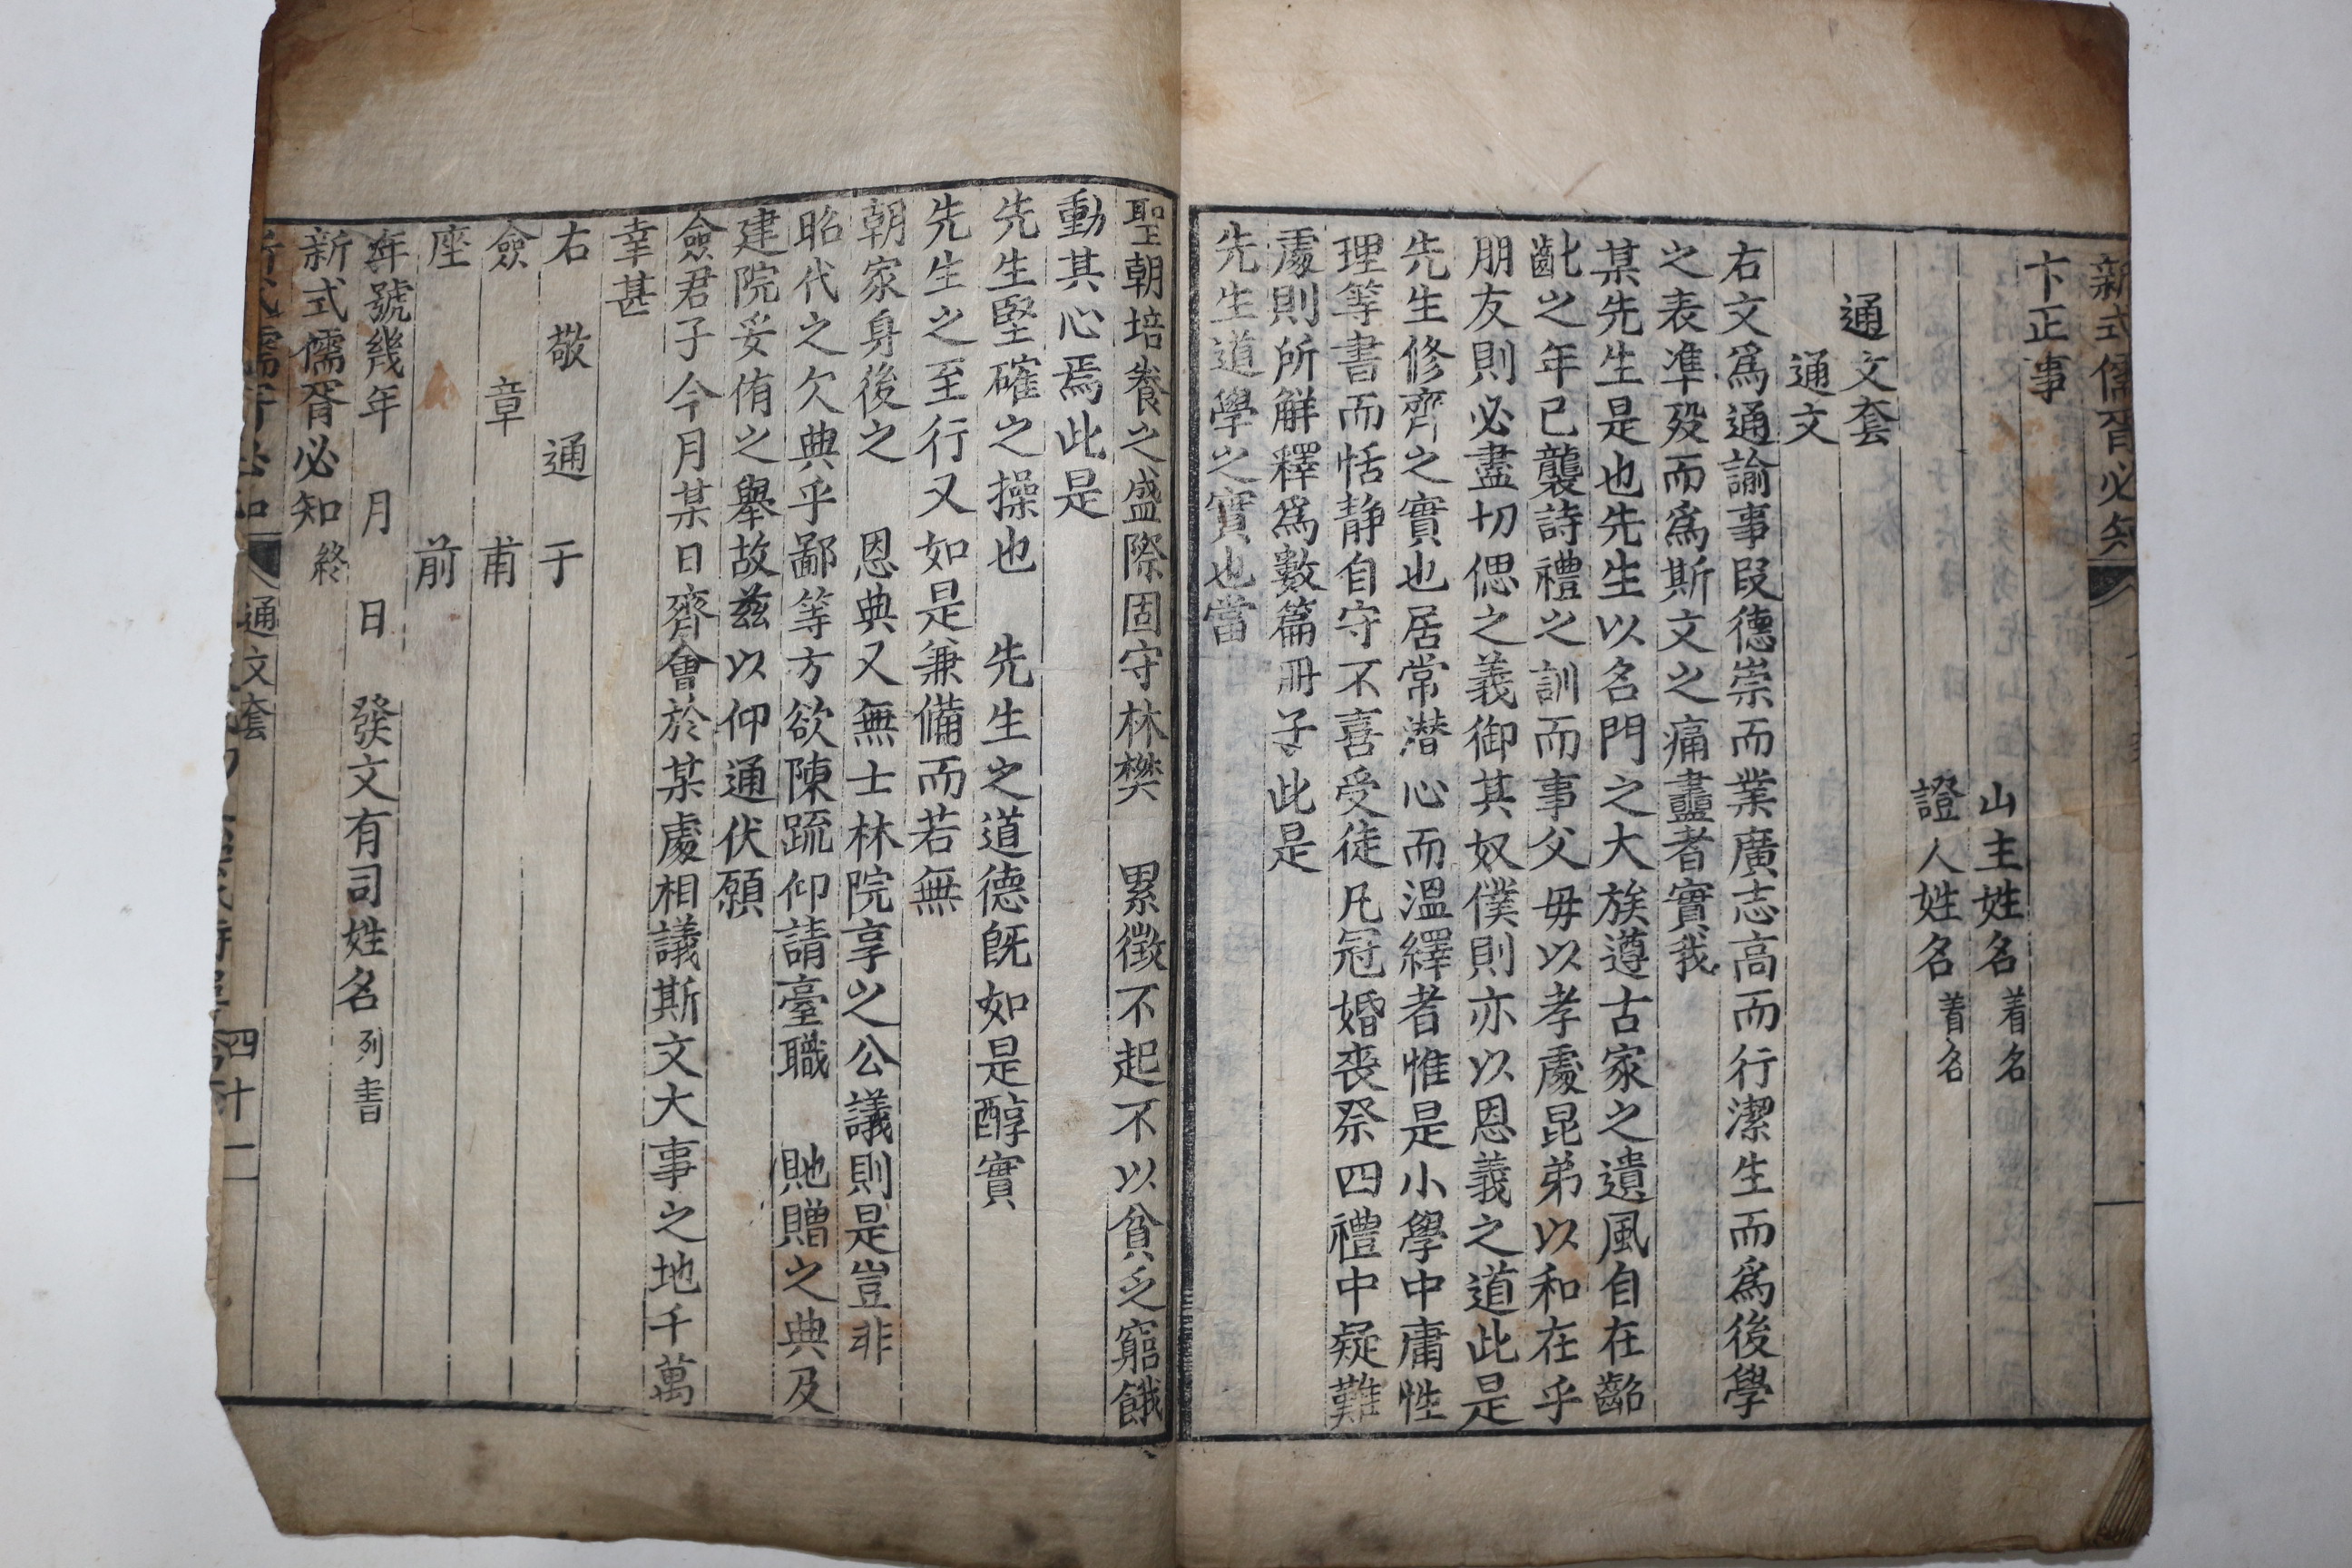 新式儒胥必知
卞正事
山主姓名着名
證人姓名着名
通文套
通文
右文爲通諭事段德崇而業廣志高而行潔生而爲後學
之表準歿而爲斯文之痛盡者實我
某先生是也先生以名門之大族遵古家之遺風自在齠
齔之年已襲詩禮之訓而事父毋以孝處昆弟以和在乎
朋友則必盡切偲之義御其奴僕則亦以恩義之道此是
先生修齊之實也居常潛心而溫繹者惟是小學中庸性
理等書而恬静自守不喜受徒凡冠婚丧祭四禮中疑難
處則所解釋爲數篇冊子此是
先生道學之實也當
聖朝培養之盛際固守林樊 累徵不起不以貧乏窮餓
動其心焉此是
先生堅確之操也 先生之道德旣如是醇實
先生之至行又如是兼備而若無
朝家身後之 恩典又無士林院享之公議則是豈非
昭代之欠典乎鄙等方欲陳疏仰請臺職 貤贈之典及
建院妥侑之舉故兹以仰通伏願
僉君子今月某日齊會於某處相議斯文大事之地千萬
幸甚
右敬通于
僉章甫
座前
年號幾年 月 日 發文有司姓名列書
新式儒胥必知終
通文套 四十一